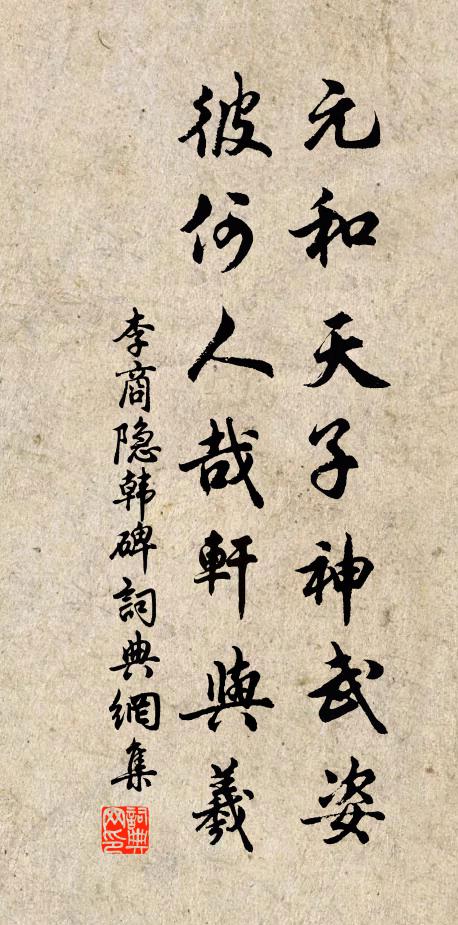 元和天子神武姿
彼何人哉軒與羲
李商隐韩碑詞典網集
詞典网印